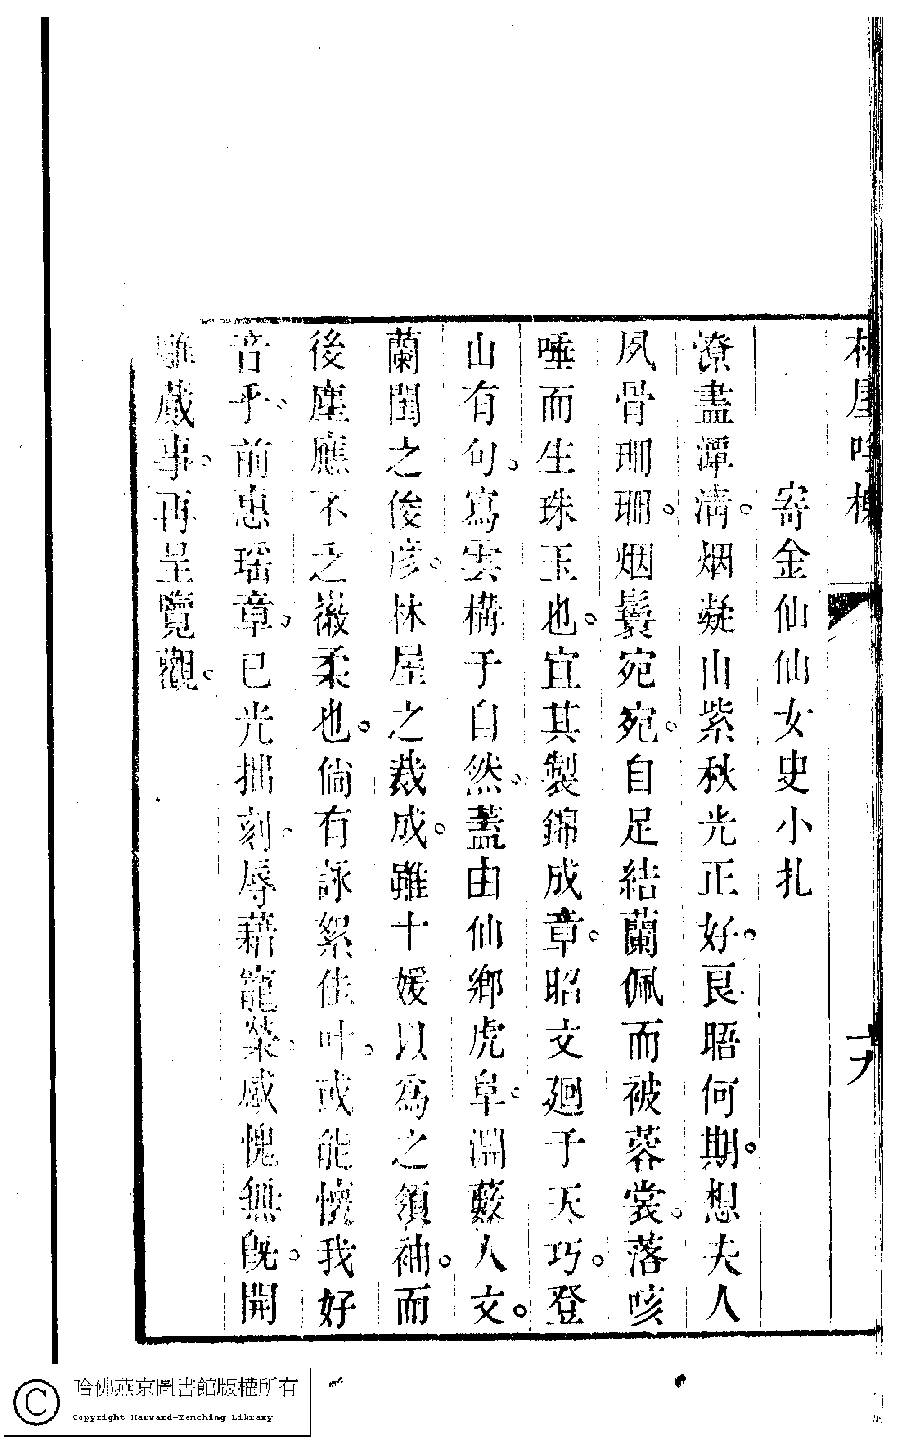 寄金仙仙女史小扎
潦盡潭清。烟凝山紫秋光正好。良晤何期。想夫人
夙骨珊珊。烟鬟宛宛。自足結蘭佩而被蓉裳。落咳
唾而生珠玉也。宜其製錦成章。昭文廻于天巧。登
山有句。寫雲構于自然。蓋由仙鄉虎阜。淵藪人文。
蘭閨之俊彦。林屋之裁成。雖十媛以為之領袖。而
後塵應不乏徽柔也。倘有詠絮佳叶。或能懷我好
音乎。前惠瑶章。已光拙刻。辱藉寵榮。感愧無旣。開
雕蕆事。再呈覽觀。
十六
哈佛燕京圖書館版權所有
Copyright Harvard-Yenching Library